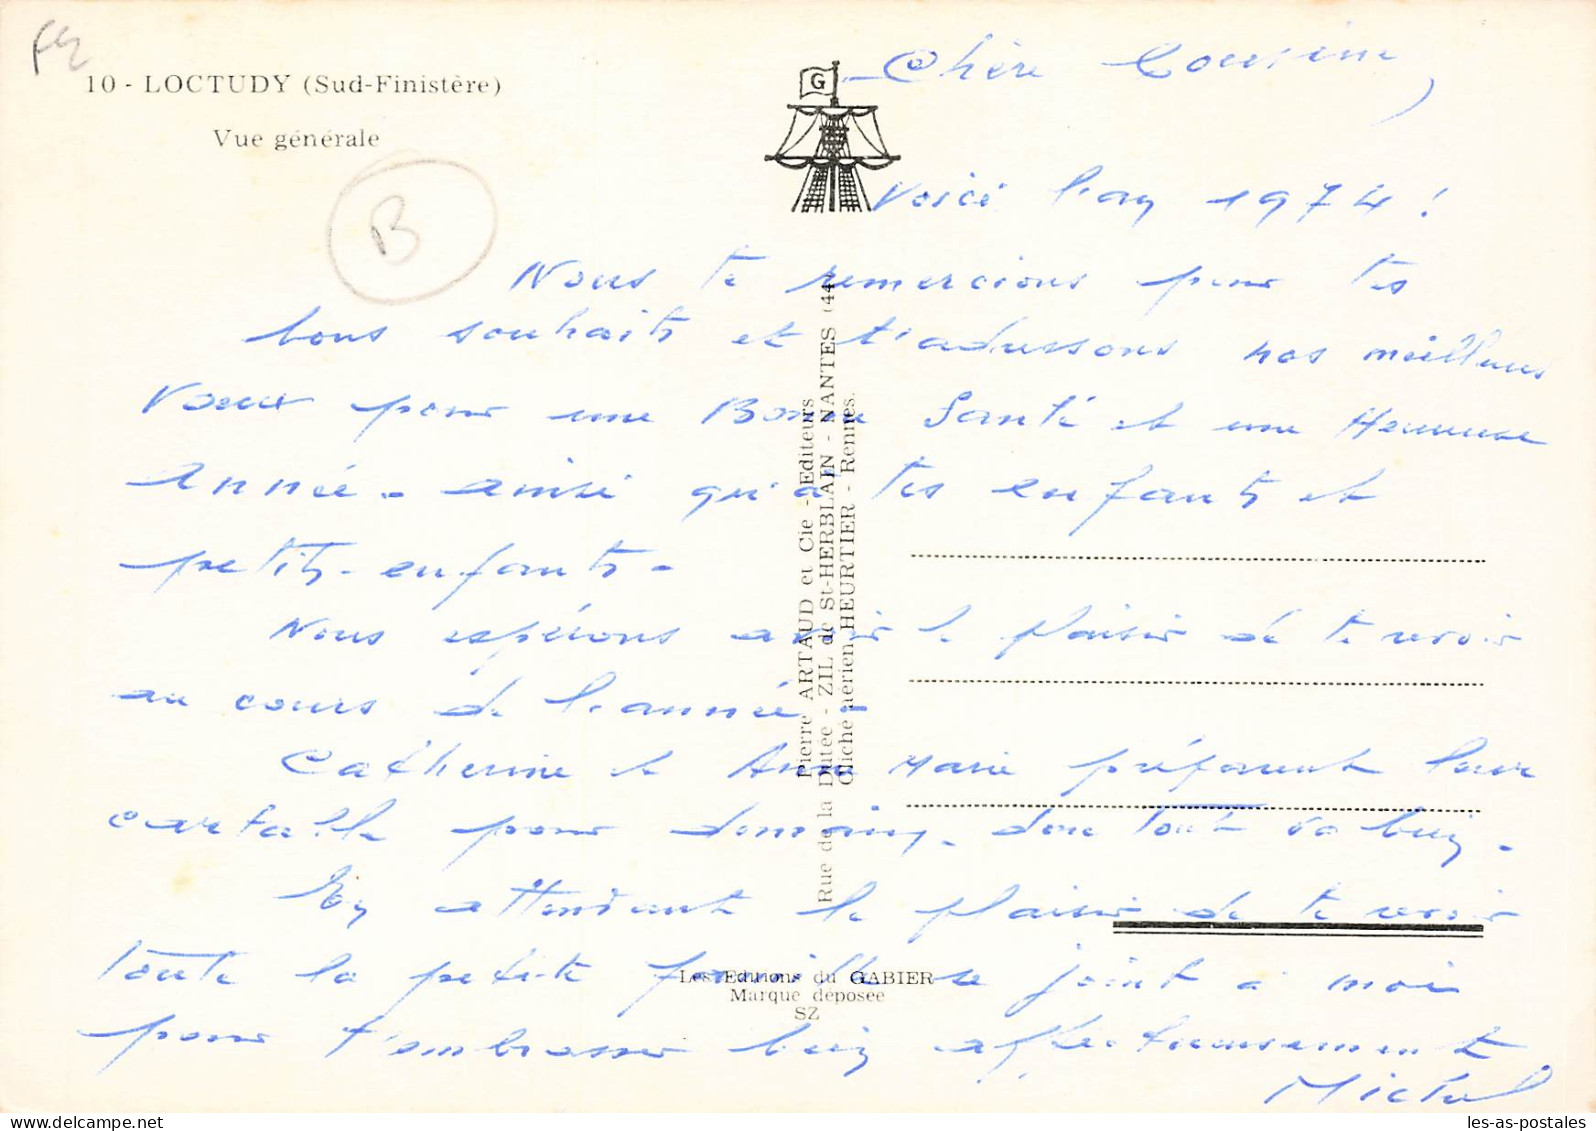 10 - LOCTUDY (Sud-Finistère)
Vue générale
B
G
Chère Cousine,
Voici l'an 1974 !
Nous te remercions pour tes
bons souhaits et t'adressons nos meilleurs
Voeux pour une Bonne Santé et une Heureuse
Année - ainsi qu'à tes enfants et
petits-enfants -
Nous espérons avoir le plaisir de te revoir
au cours de l'année.
Catherine et Anne Marie préparent leur
cartable pour demain - donc tout va bien -
En attendant le plaisir de te revoir
toute la petite famille se joint à moi
pour t'embrasser bien affectueusement
Michel
Pierre ARTAUD et Cie - Editeurs
Rue de la Dutée - ZIL de St-HERBLAIN - NANTES (44)
Cliché aérien HEURTIER - Rennes.
Les Editions du GABIER
Marque déposée
SZ
les-as-postales